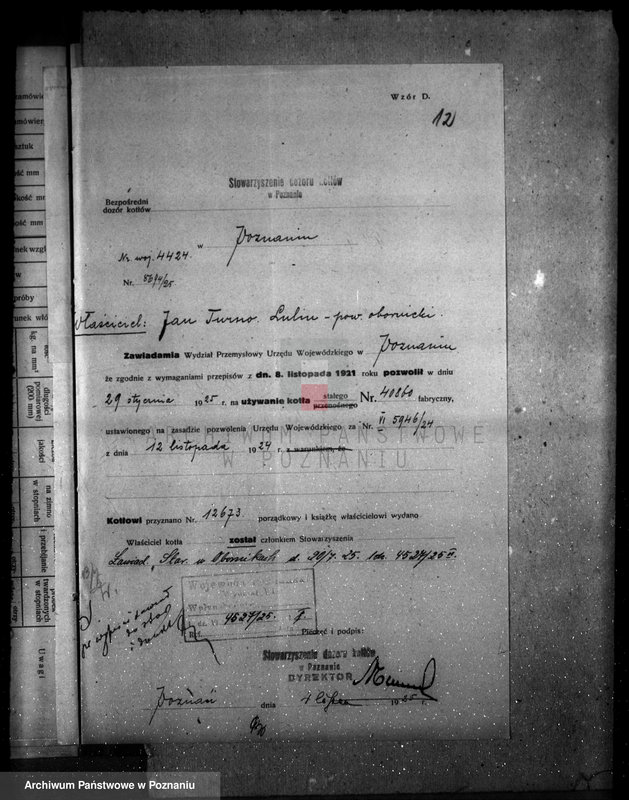 Wzór D.
12
Stowarzyszenie dozoru kotłów
w Poznaniu
Bezpośredni
dozór kotłów
w Poznaniu
Nr. woj. 4424.
Nr. 8694/25
Właściciel: Jan Turno. Lulin - pow. obornicki.
Zawiadamia Wydział Przemysłowy Urzędu Wojewódzkiego w Poznaniu
że zgodnie z wymaganiami przepisów z dn. 8. listopada 1921 roku pozwolił w dniu
29 stycznia 1925 r. na używanie kotła stałego przenośnego Nr. 40860 fabryczny,
ustawionego na zasadzie pozwolenia Urzędu Wojewódzkiego za Nr. II 5946/24
z dnia 12 listopada 1924 r. z warunkiem, że
ARCHIWUM PAŃSTWOWE
W POZNANIU
Kotłowi przyznano Nr. 12673 porządkowy i książkę właścicielowi wydano
Właściciel kotła został członkiem Stowarzyszenia
Zawiad. Star. w Obornikach d. 30/7. 25. ldz. 4527/25 II.
4527/25.
Pieczęć i podpis:
Stowarzyszenie dozoru kotłów
w Poznaniu
DYREKTOR
Poznań dnia 1 lipca 1925 r.
zamówie
zamówien
sztuk
kość mm
ość mm
w
próby
kg. na mm²
długości
pomiarowej
(200 mm)
jakości
na zimno
w stopniach
i przebijanie
twardzonych
w stopniach
Uwagi
Archiwum Państwowe w Poznaniu